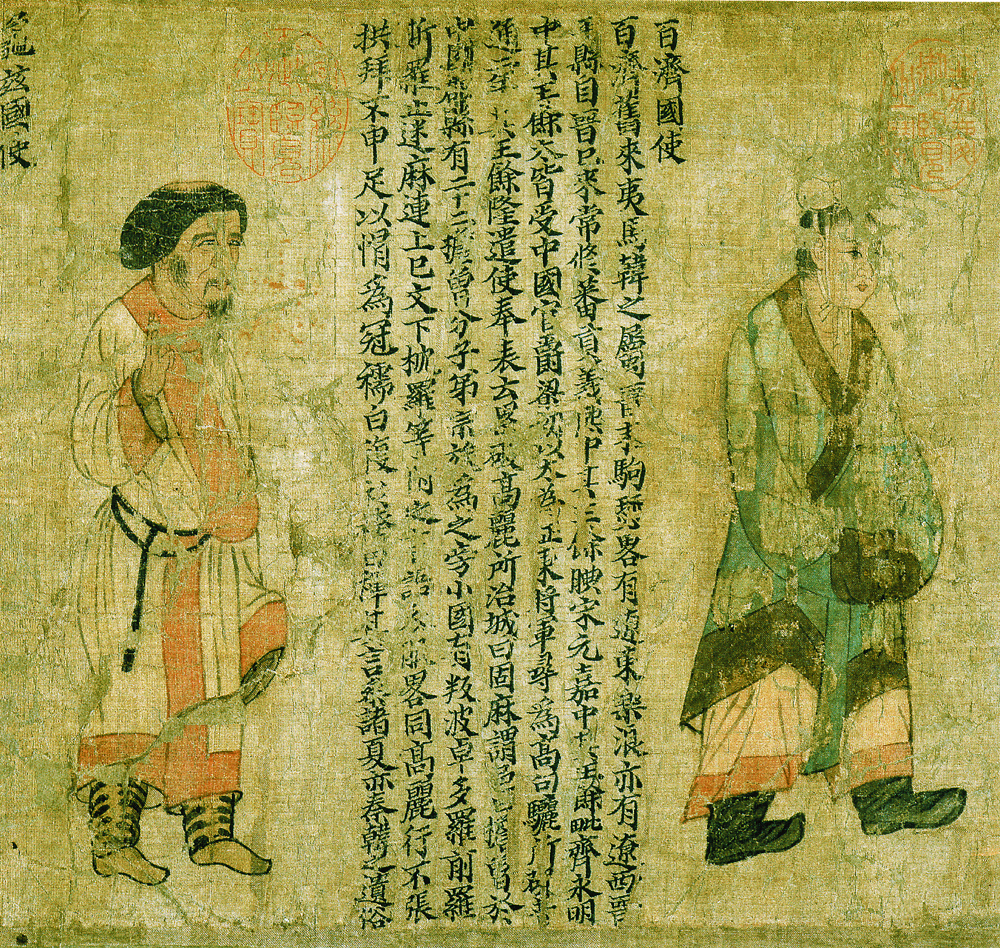 百濟國使
百濟舊來夷馬韓之屬晉末駒驪畧有遼東樂浪亦有遼西晉
平縣自晉已來常修蕃貢義熙中其王餘腆宋元嘉中其王餘毗齊永明
中其王餘太皆受中國官爵梁初以太為征東將軍尋為高句驪所破普
通二年其王餘隆遣使奉表云累破高麗所治城曰固麻謂邑曰檐魯於
中國郡縣有二十二檐魯分子弟宗族為之旁小國有叛波卓多羅前羅
斯羅止迷麻連上巳文下枕羅等附之言語衣服畧同高麗行不張
拱拜不申足以帽為冠襦曰複衫袴曰褌其言參諸夏亦秦韓之遺俗
龜茲國使